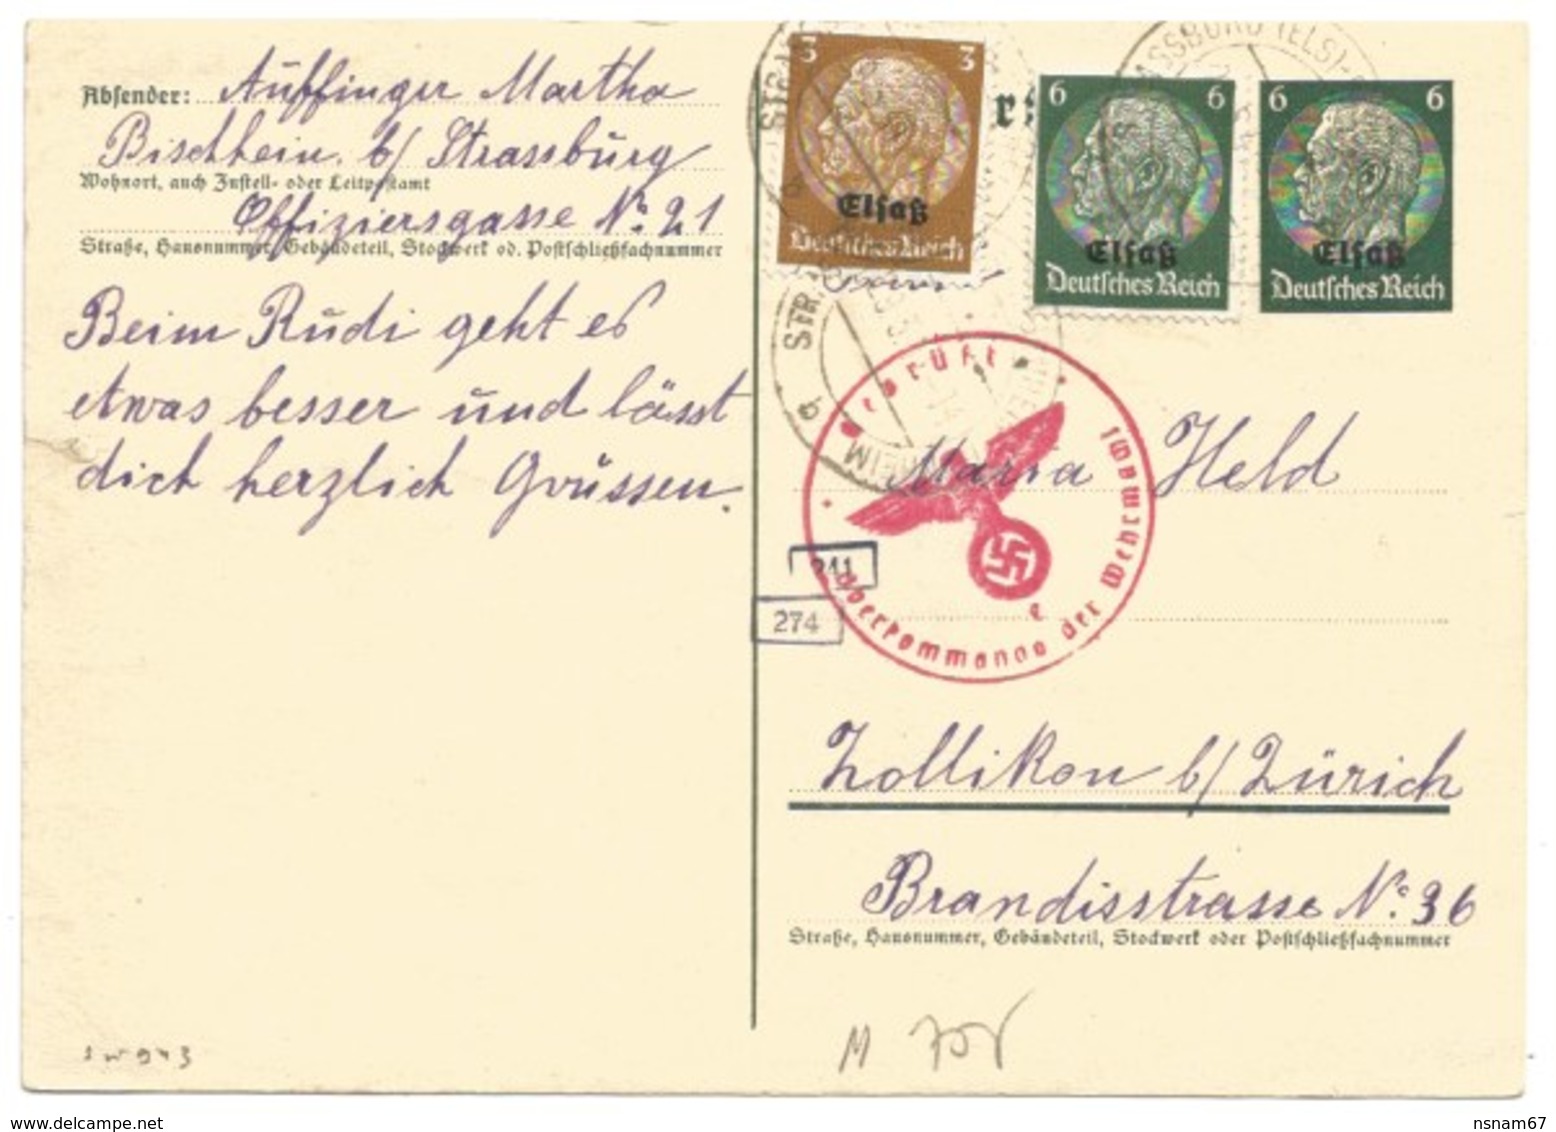 Absender: Aüffinger Martha
Bischheim b/ Strassbürg
Wohnort, auch Zustell- oder Leitpostamt
Offiziersgasse No 21
Straße, Hausnummer, Gebäudeteil, Stockwerk od. Postschließfachnummer
Beim Rüdi geht es
etwas besser ünd lässt
dich herzlich Grüssen.
3 3
Elsaß
Deutsches Reich
6 6
Elsaß
Deutsches Reich
6 6
Elsaß
Deutsches Reich
ASSBURG (ELS)-
Oberkommando der Wehrmacht
e
Maria Held
241
274
Zollikon b/ Zürich
Brandisstrasse No. 36
Straße, Hausnummer, Gebäudeteil, Stockwerk oder Postschließfachnummer
www.delcampe.net
nsnam67